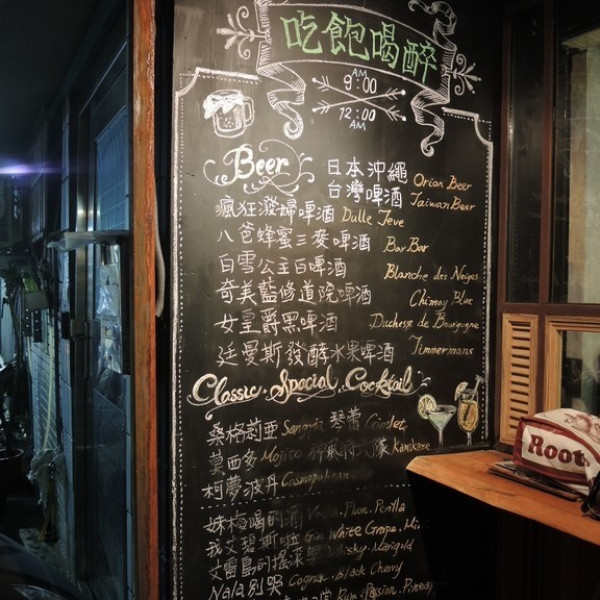 吃飽喝醉
AM
9:00
12:00
AM
Beer
日本沖繩 Orian Beer
台灣啤酒 Taiwan Beer
瘋狂潑婦啤酒 Dulle Teve
八爸蜂蜜三麥啤酒 BarBar
白雪公主白啤酒 Blanche des Neiges
奇美藍修道院啤酒 Chimay Blue
女皇爵黑啤酒 Duchesse de Bourgogne
廷曼斯發酵水果啤酒 Timmermans
Classic Special Cocktail
桑格莉亞 Sangria 琴蕾 Gimlet
莫西多 Mojito 神風特攻隊 Kamikaze
柯夢波丹 Cosmopolitan
妹梅喝的酒 Vodka. Plum. Perilla
我艾碧斯啦 Gin. White Grape.
艾雷島的搖 Whisky. Marigold
Nala別哭 Cognac. Black Cherry
Rum. Passion.
Roots